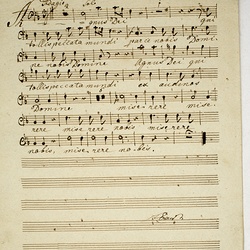 Adagio Solo
Agnus Dei qui
tollis peccata mundi parce nobis Domi-
ne nobis Domine Agnus Dei qui
tollis peccata mundi ex audi nos
Domine mise-rere mise-
rere mise rere nobis mise rere
nobis, mise-rere no-bis.